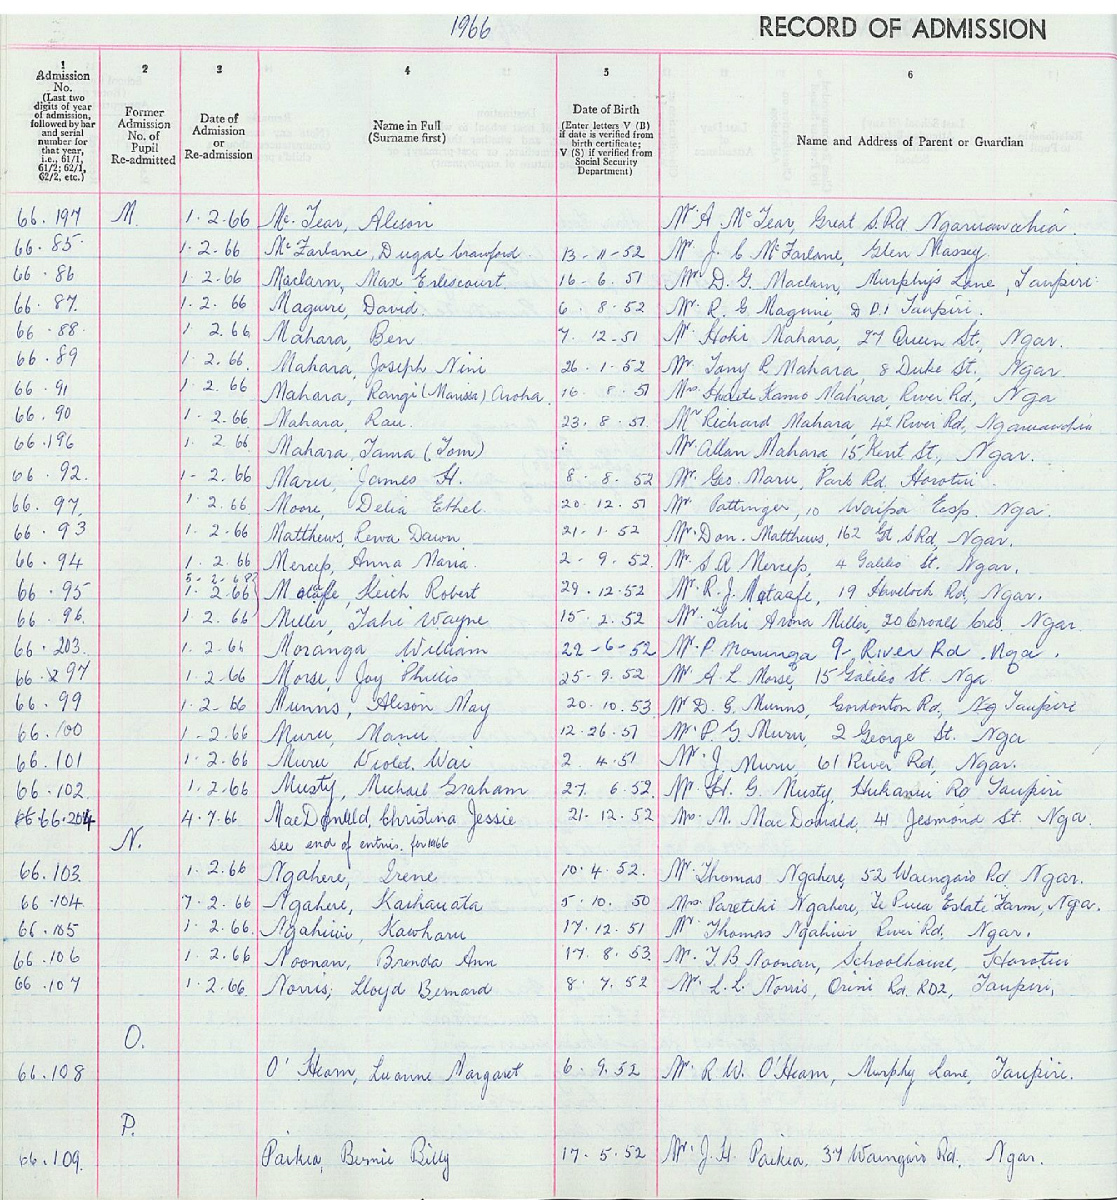 1966 RECORD OF ADMISSION
1 2 3 4 5 6
Admission No. (Last two digits of year of admission, followed by bar and serial number for that year, i.e., 61/1, 61/2; 62/1, 62/2, etc.)
Former Admission No. of Pupil Re-admitted
Date of Admission or Re-admission
Name in Full (Surname first)
Date of Birth (Enter letters V (B) if date is verified from birth certificate; V (S) if verified from Social Security Department)
Name and Address of Parent or Guardian
66.197 M. 1.2.66 Mc. Tear, Alison Mr. A. McTear, Great S. Rd Ngaruawahia.
66.85 1.2.66 McFarlane, Dugal Crawford 13-11-52 Mr. J. C McFarlane, Glen Massey
66.86 1.2.66 Maclarn, Max 16-6.51 Mr D. G. Maclarn, Murphy's Lane, Taupiri
66.87 1.2.66 Maguire, David 6.8.52 Mr. R. G. Maguire, Taupiri.
66.88 1.2.66 Mahara, Ben 7.12.51 Mr. Hoki Mahara, 27 Queen St., Ngar.
66.89 1.2.66. Mahara, Joseph Nini 26.1.52 Mr Tony R Mahara, 8 Duke St., Ngar
66.91 1.2.66 Mahara, Rangi (Marissa) Aroha. 16.8.51 Mrs Kamo Mahara, River Rd, Nga
66.90 1.2.66 Mahara, Rau. 23.8.51. Mr Richard Mahara, 42 River Rd, Ngaruawahia
66.196 1.2.66 Mahara, Tama (Tom) Mr. Allan Mahara 15 Kent St., Ngar.
66.92. 1-2.66 Maru, James H. 8.8.52 Mr. Geo. Maru, Park Rd. Horotiu.
66.97, 1.2.66 Moore, Delia Ethel. 20.12.51 Mr. Pattinger, 10 Waipa Esp. Nga.
66.93 1.2.66 Matthews, Rewa Dawn 21.1.52 Mr. Don. Matthews, 162 Gt. S Rd, Ngar.
66.94 1.2.66 Mercep, Anna Maria. 2-9.52. Mr. S. A. Mercep, 4 Galileo St. Ngar.
66.95 1.2.66 Mataafe, Keith Robert 29.12.52 Mr. R. J. Mataafe, 19 Havelock Rd, Ngar.
66.96. 1.2.66 Miller, Tahi Wayne 15.2.52 Mr. Tahi Miller, 20 Cres. Ngar.
66.203. 1.2.66 Moranga William 22-6-52 Mr. P. Moranga 9- River Rd Nga.
66.297 1.2.66 Morse, Joy Phillis 25-9.52 Mr. A. L Morse, 15 Galileo St. Nga
66.99 1.2-66 Munns, Alison May 20.10.53 Mr D. G. Munns, Gordonton Rd, Ng Taupiri
66.100 1-2.66 Muru, Manu 12.26.51 Mr. P. G Muru, 2 George St. Nga
66.101 1.2.66 Muru Violet. Wai 2.4.51 Mr. J. Muru, 61 River Rd, Ngar.
66.102. 1.2.66 Musty, Michael Graham 27.6.52. Mr. H. G. Musty, Hukanui Rd Taupiri
66.204 4.7.66 MacDonald, Christina Jessie 21.12.52 Mrs. M. MacDonald, 41 Jesmond St. Nga.
N. see end of entries. for 1966
66.103. 1.2.66 Ngahere, Irene 10.4.52. Mr. Thomas Ngahere, 52 Waingaro Rd Ngar.
66.104 7.2.66 Ngahere, 5.10.50 Mrs. Ngahere, Te Puea Estate Farm, Nga.
66.105 1.2.66. Ngahiwi, Kawharu 17.12.51 Mr. Thomas Ngahiwi River Rd, Ngar.
66.106 1.2.66 Noonan, Brenda Ann 17.8.53. Mr. T. B Noonan, Schoolhouse, Horotiu
66.107 1.2.66. Norris, Lloyd Bernard 8.7.52 Mr. L. L. Norris, Orini Rd. RD2, Taupiri,
O.
66.108 O'Hearn, Luanne Margaret 6.9.52 Mr. R W. O'Hearn, Murphy Lane, Taupiri.
P.
66.109. Paikea, Bernie Billy 17.5.52 Mr. J. H. Paikea. 37 Waingaro Rd. Ngar.